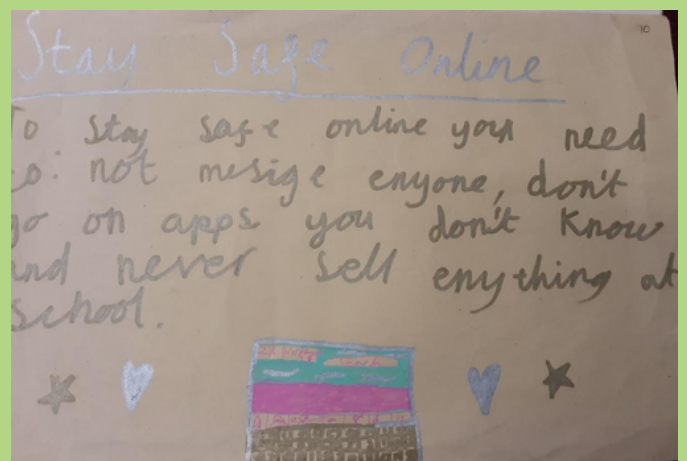 10
Stay Safe Online
To stay safe online you need
to: not mesige enyone, don't
go on apps you don't know
and never sell enything at
school.